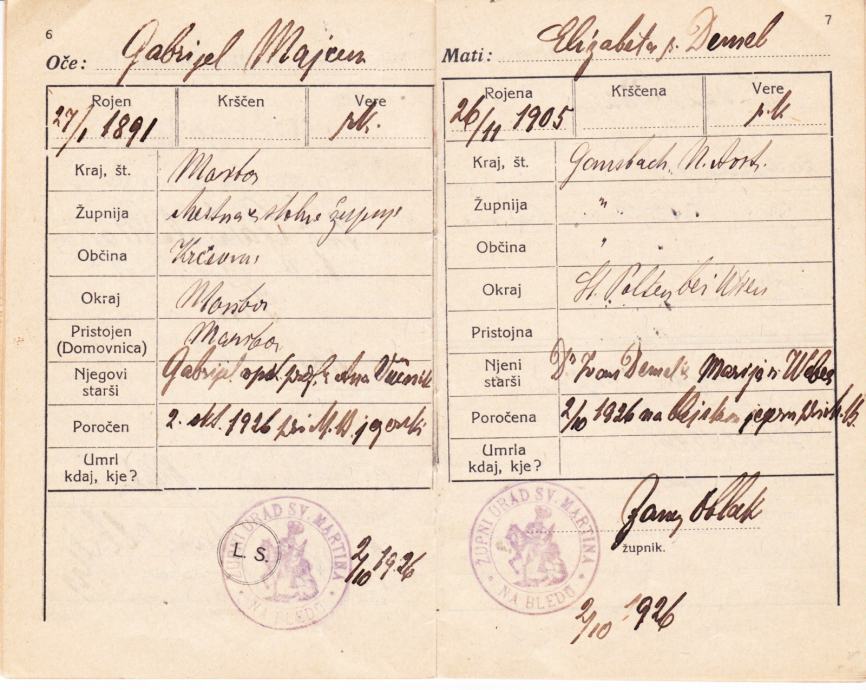 6
Oče: Gabrijel Majcen
Rojen Krščen Vere
27/1 1891 r.k.
Kraj, št. Maribor
Župnija Mestna stolna župnija
Občina Krčevina
Okraj Maribor
Pristojen (Domovnica) Maribor
Njegovi starši Gabrijel prof. Ana
Poročen 2. okt. 1926 pri M. B.
Umrl kdaj, kje?
L. S.
ŽUPNI URAD SV. MARTINA
NA BLEDU
2/10 1926
7
Mati: Elizabeta r. Demel
Rojena Krščena Vere
26/11 1905 r.k.
Kraj, št. Gansbach N.
Župnija "
Občina "
Okraj St. Polten bei Wien
Pristojna
Njeni starši Dr Ivan Demel Marija r. Weber
Poročena 2/10 1926 na
Umrla kdaj, kje?
ŽUPNI URAD SV. MARTINA
NA BLEDU
Oblak
župnik.
2/10 1926